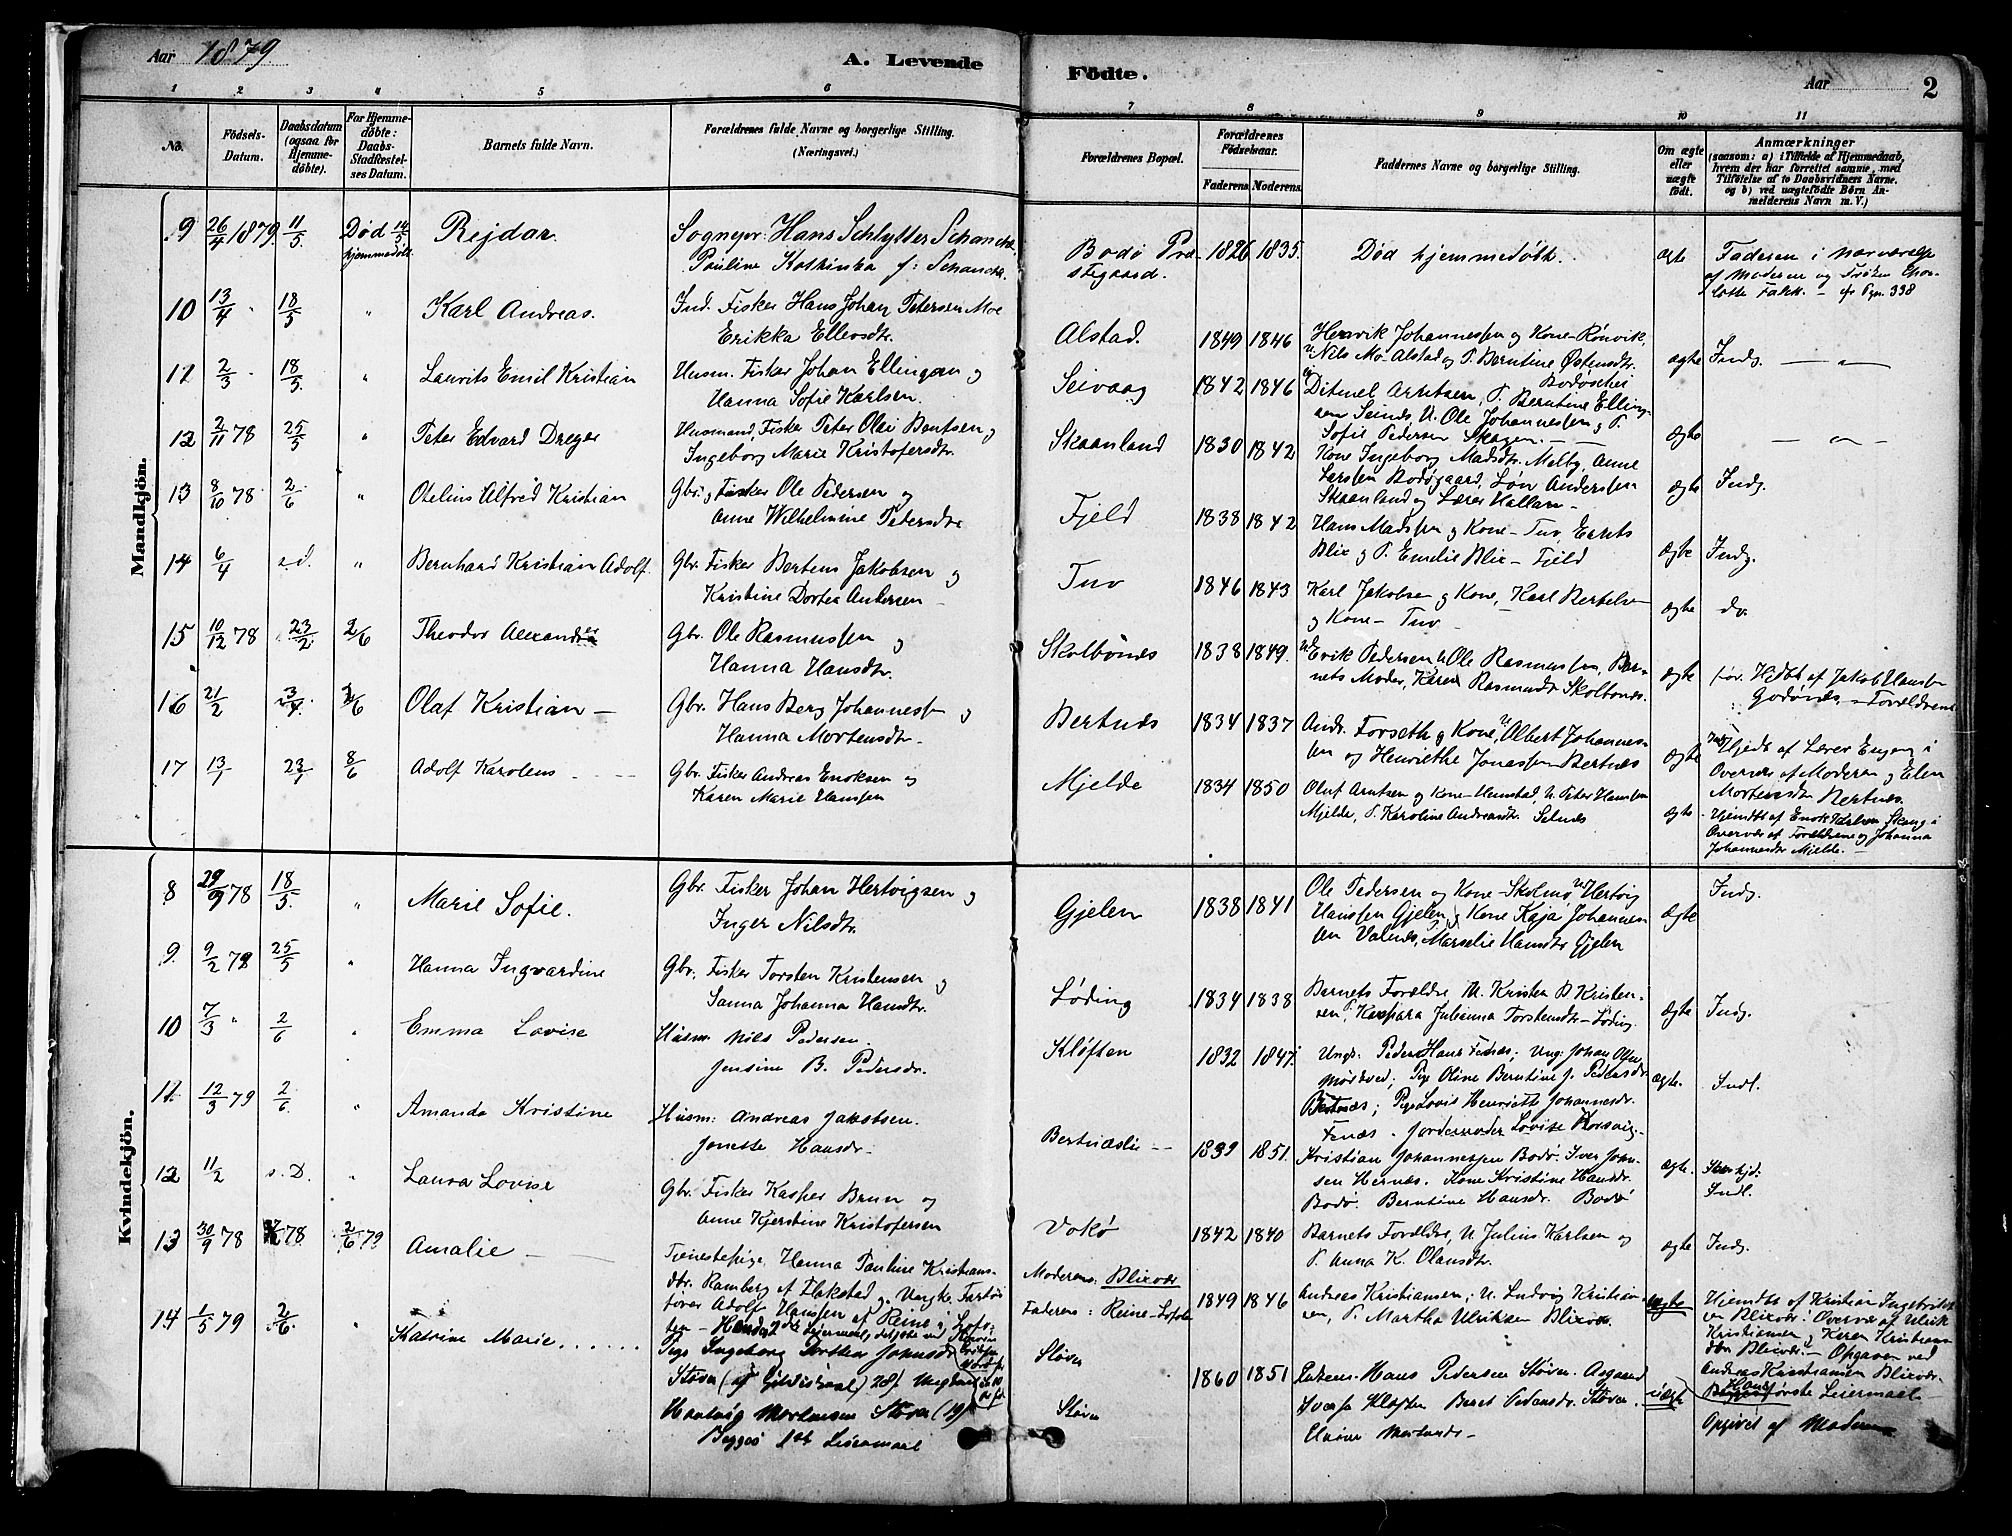 Aar 1879
A. Levende
Fødte.
Aar
2
1 2 3 4 5 6 7 8 9 10 11
No.
Fødsels-Datum.
Daabsdatum (ogsaa for Hjemmedøbte).
For Hjemmedøbte: Daabs-Stadfæstelses Datum.
Barnets fulde Navn.
Forældrenes fulde Navne og borgerlige Stilling.
(Næringsvei.)
Forældrenes Bopæl.
Forældrenes Fødselsaar.
Faderens. Moderens.
Faddernes Navne og borgerlige Stilling.
Om ægte eller uægte født.
Anmærkninger
(saasom: a) i Tilfælde af Hjemmedaab, hvem der har forrettet samme, med Tilføielse af to Daabsvidners Navne, og b) ved uægtefødte Børn Anmelderens Navn m. V.)
Mandkjön.
9 26/4 1879 11/5 Død 14/5 hjemmedøbt Rejdar. Sognepr: Hans Schlytter Schancke
Pauline Kathinka f: Schancke
Bodø Præstegaard. 1826 1835. Død hjemmedøbt. ægte Faderen i nærværelse
af Moderen og Frøken Charlotte Falck. — cfr Pgn. 338
10 13/4 " 18/5 " Karl Andreas. Ind. Fisker Hans Johan Petersen Moe
Erikka Ellevsdtr.
Alstad. 1849 1846 Henrik Johannessen og Kone - Rønvik,
Nils Mo - Alstad og P. Berntine Østensdtr. ægte Indg. — " —
11 2/3 " 18/5 " Laurits Emil Kristian Husm. Fisker Johan Ellingsen og
Hanna Sofie Karlsen.
Seivaag 1842 1846 Ditmel Arntsen, P. Berntine Ellingsen
Seines U. Ole Johannessen og P.
Sofie Pedersen Skagen. — ægte — " —
12 2/11 78 25/5 " Peter Edvard Dreyer Husmand, Fisker Peter Olai Bentsen og
Ingeborg Marie Kristofersdtr.
Skaanland 1830 1842 Kone Ingeborg Madsdtr. Melby, Anne
Larssen Bodøgaard, Løn Anderssen
Skaanland og Lærer Hallan — ægte Indg.
13 8/10 78 2/6 " Otelius Alfred Kristian Gbr. og Fisker Ole Pedersen og
Anne Wilhelmine Petersdtr
Fjeld 1838 1842 Hans Madssen og Kone - Tuv,
Blix og P. Emelie Blix - Fjeld ægte Indg.
14 6/4 s.d. " Bernhard Kristian Adolf. Gbr. Fisker Bertens Jakobsen og
Kristine Dortea Andersen —
Tuv 1846 1843 Karl Jakobsen og Kone, Karl Bertelsen
og Kone - Tuv ægte do.
15 10/12 78 23/2 2/6 Theodor Alexander Gbr. Ole Rasmussen og
Hanna Hansdtr.
Skolbønes 1838 1849. Erik Pedersen, Ole Rasmussen, Barnets
Moder, Karen Rasmusdtr Skolbønes. ægte Hjdbt af Jakob Hansen
Godønes. — Forældrene
16 21/2 3/4 2/6 Olaf Kristian — Gbr. Hans Berg Johannessen og
Hanna Mortensdtr.
Bertnæs 1834 1837 Andr. Forseth og Kone, Albert Johannessen
og Henriethe Jonassen Bertnæs ægte Hjedt af Lærer Engen i
Overvær af Moderen og Elen
Mortensdtr Bertnæs.
17 13/1 23/1 8/6 Adolf Karolens — Gbr. Fisker Andreas Enoksen og
Karen Marie Hanssen
Mjelde 1834 1850 Oluf Arntsen og Kone - Hunstad, U. Peter Hanssen
Mjelde, P. Karoline Andreasdtr. Selnæs ægte Hjemdt af Enok Karlsen Skaug i
Overvær af Forældrene og Johanna
Johannesdtr Mjelde. —
Kvindekjön.
8 29/9 78 18/5 " Marie Sofie. Gbr. Fisker Johan Hertvigsen og
Inger Nilsdtr.
Gjelen 1838 1841 Ole Pedersen og Kone - Skolmo, Hertvig
Hanssen Gjelen og Kone Kaja Johannessen
Valnæs, Marselie Hansdtr Gjelen ægte Indg.
9 9/2 79 25/5 " Hanna Ingvardine Gbr. Fisker Torsten Kristensen og
Sanna Johanna Hansdtr.
Løding 1834 1838 Barnets Forældre, U. Kristen B. Kristensen
P. Kaspara Julianna Torstensdtr - Løding. ægte Indg.
10 7/3 " 2/6 " Emma Lovise Husm. Nils Pedersen.
Jensine B. Pedersdr.
Kløften 1832 1847. Ungk. Peder Hans Fenæs; Ungk. Johan Olsen
Mørkved; Pige Oline Berntine J. Pedersdr
Bertnæs; Pige Lovis Henriette Johannesdr.
Fenæs. Jordemoder Lovise Korsvig. ægte. Indl.
11 12/3 79 2/6 " Amanda Kristine Husm: Andreas Jakobsen.
Jonette Hansdr.
Bertnæslie — 1839 1851. Kristian Johannessen Bodø. Iver Johnsen
Hernæs. Kone Kristine Hansdr.
Bodø. Berntine Hansdr. Bodø ægte. Indl.
12 11/2 s.D. " Laura Lovise Gbr. Fisker Kasper Brun og
Anne Kjerstine Kristofersen
Vokø 1842 1840 Barnets Forældre, U. Julius Karlsen og
P. Anna K. Olausdtr. ægte Indg.
13 30/9 78 78 2/6 79 Amalie — Tjenestepige Hanna Pauline Kristiansdtr.
Ramberg af Flakstad og Ungk. Fartøifører
Adolf Hanssen af Reine i Lofoten
— Hendes 2det Leiermaal,
Moderens: Blixvær
Faderens: Reine - Lofoten 1849 1846 Andreas Kristiansen, U. Ludvig Kristiansen,
P. Martha Ulriksen Blixvær. uægte Hjemdt af Kristian Ingebriktsen
Blixvær i Overvær af Ulrik
Kristiansen og Karen Kristiansdtr
Blixvær — Opgaven ved
Andreas Kristiansen Blixvær.
Hans første Leiermaal —
14 1/5 79 2/6 " Katrine Marie. . . . . . Pige Ingeborg Dorthea Johnsdr.
Støver (af Gildeskaal) 28/ Ungkarl
Hartvig Mortensen Støver (19)
Begges 1ste Leiermaal
Støver
Støver 1860 1851 Hans Pedersen Støver. Aagaard
Kløften Beret Pedersdr. Støver. uægte Opgivet af Moderen